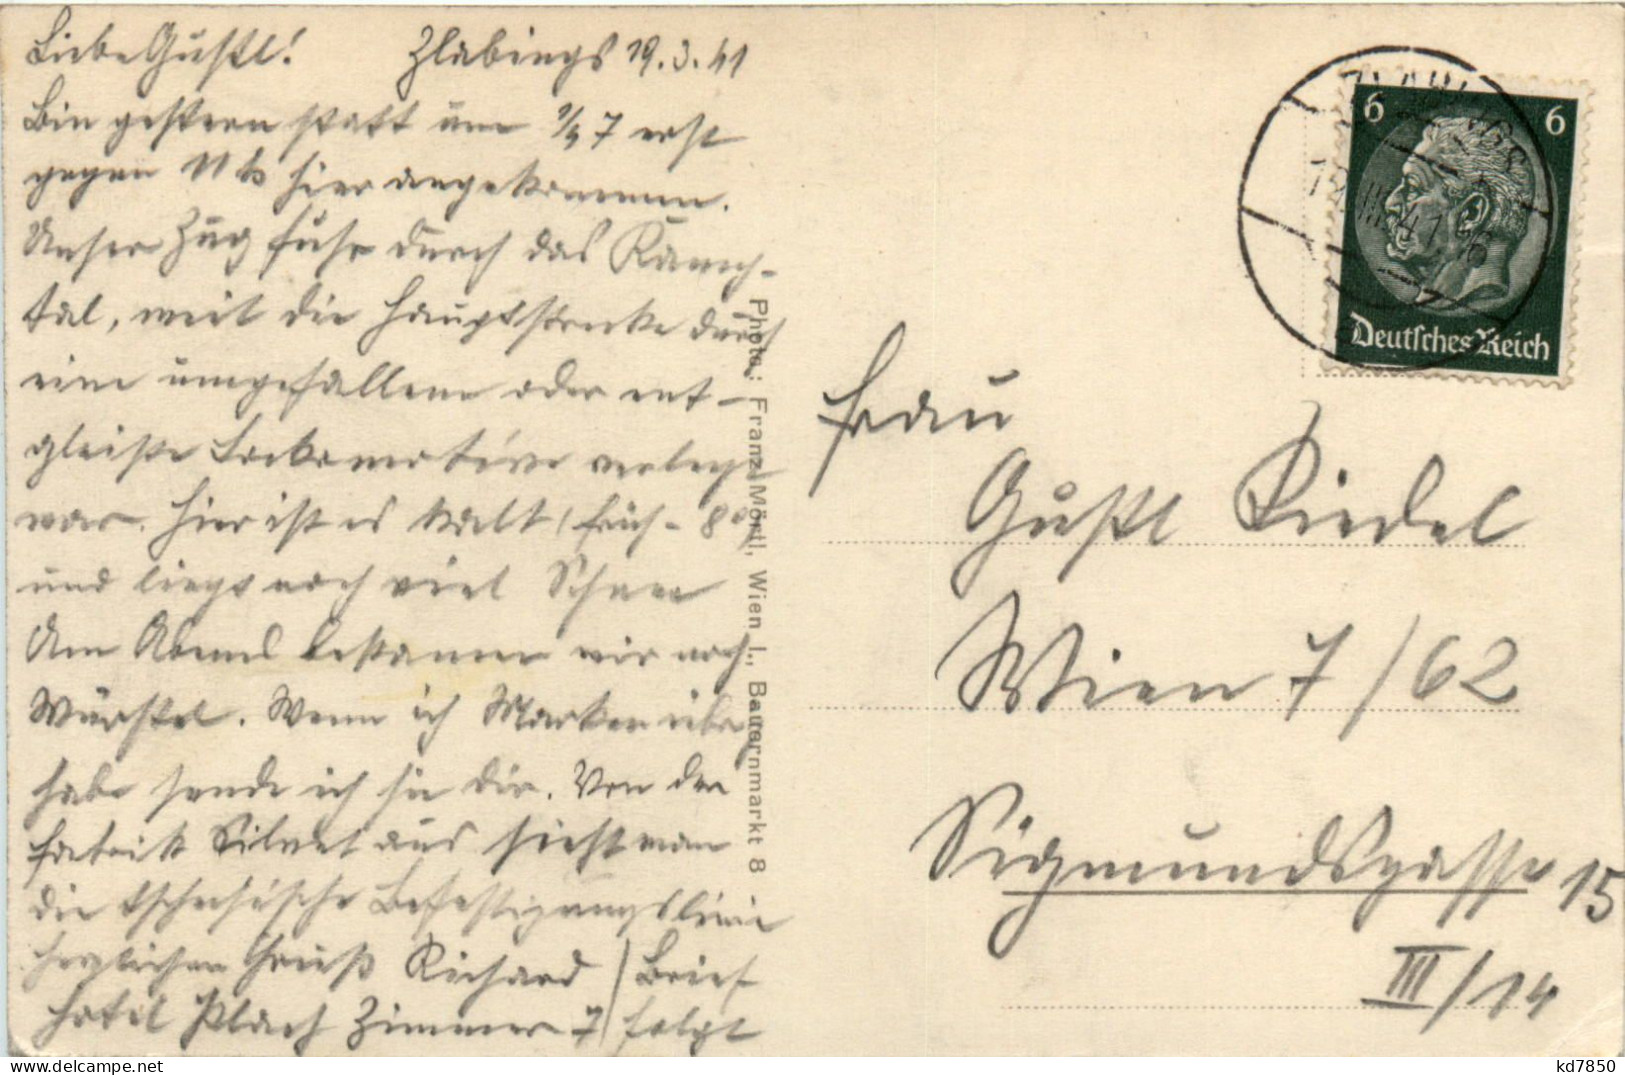 Liebe Gustl! Zlabings 19.3.41
Bin gestern statt um 1/4 7 erst
gegen 11 h hier angekommen.
Unser Zug fuhr durch das Kamp-
tal, weil die Hauptstrecke durch
eine umgefallene oder ent-
gleiste Lockomotive verlegt
war. Hier ist es kalt (früh - 8°)
und liegt noch viel Schnee
Am Abend bekamen wir noch
Würstel. Wenn ich Marken übrig
habe sende ich sie dir. Von der
Fabrik aus sieht man
die tschechische Befestigungslinie
Herzlichen Gruß Richard / Brief
Hotel Plach Zimmer 7 / folgt
Photo: Franz Mörtl, Wien I., Bauernmarkt 8
6 6
Deutsches Reich
ZLABINGS
Frau
Gustl Riedel
Wien 7/62
Sigmundsgasse 15
III/14
kd7850